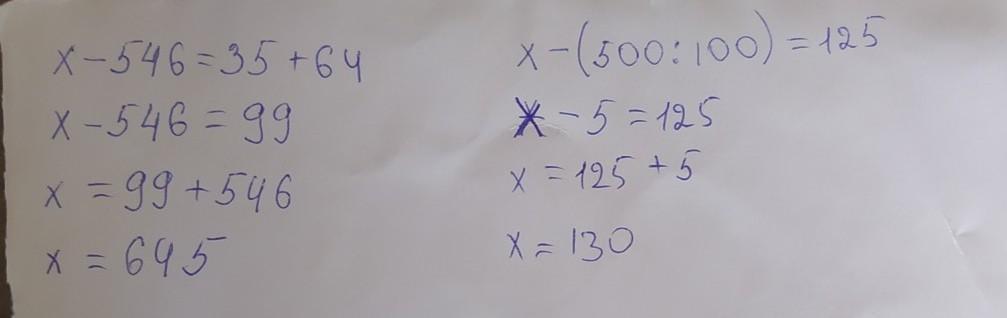 x-546=35+64
x-546=99
x=99+546
x=645
x-(500:100)=125
x-5=125
x=125+5
x=130